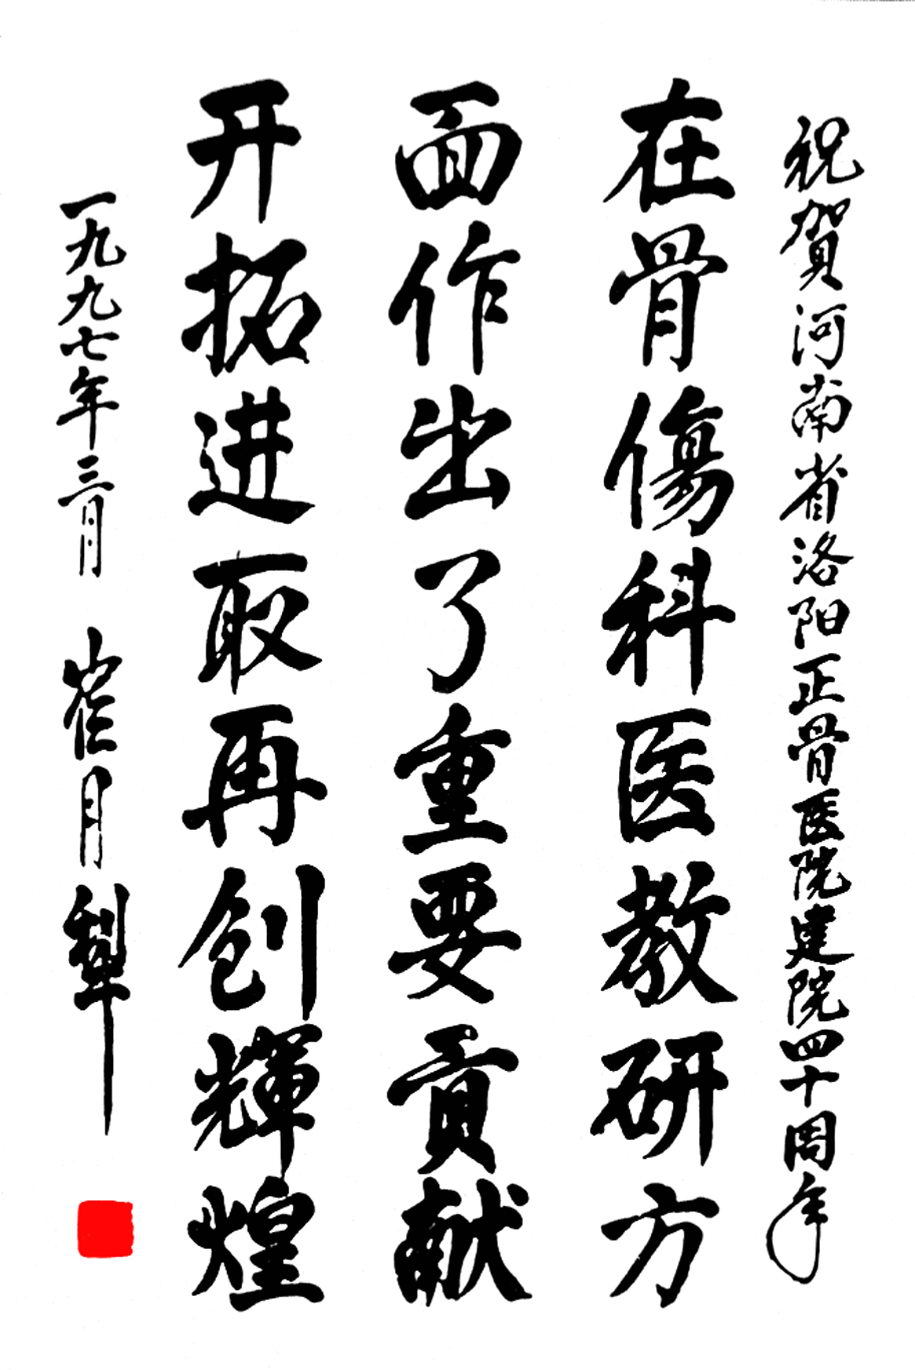 祝賀河南省洛阳正骨医院建院四十周年
在骨傷科医教研方
面作出了重要贡献
开拓进取再创輝煌
一九九七年三月 崔月犁